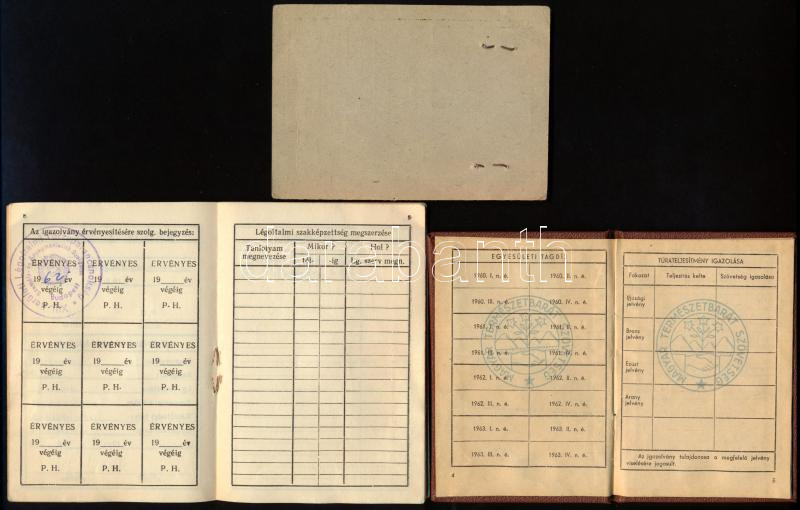 darabanth
8
Az igazolvány érvényesítésére szolg. bejegyzés:
ÉRVÉNYES ÉRVÉNYES ÉRVÉNYES
1962 év 19 év 19 év
végéig végéig végéig
P. H. P. H. P. H.
ÉRVÉNYES ÉRVÉNYES ÉRVÉNYES
19 év 19 év 19 év
végéig végéig végéig
P. H. P. H. P. H.
ÉRVÉNYES ÉRVÉNYES ÉRVÉNYES
19 év 19 év 19 év
végéig végéig végéig
P. H. P. H. P. H.
9
Légoltalmi szakképzettség megszerzése
Tanfolyam megnevezése
Mikor ?
Hol ?
-tól -ig
Lg. szerv megn.
EGYESÜLETI TAGDÍJ
1960. I. n. é. 1960. II. n. é.
1960. III. n. é. 1960. IV. n. é.
1961. I. n. é. 1961. II. n. é.
1961. III. n. é. 1961. IV. n. é.
1962. I. n. é. 1962. II. n. é.
1962. III. n. é. 1962. IV. n. é.
1963. I. n. é. 1963. II. n. é.
1963. III. n. é. 1963. IV. n. é.
MAGYAR TERMÉSZETBARÁT SZÖVETSÉG
4
TÚRATELJESÍTMÉNY IGAZOLÁSA
Fokozat Teljesítés kelte Szövetség igazolása
Ifjúsági
jelvény
Bronz
jelvény
Ezüst
jelvény
Arany
jelvény
MAGYAR TERMÉSZETBARÁT SZÖVETSÉG
Az igazolvány tulajdonosa a megfelelő jelvény
viselésére jogosult.
5